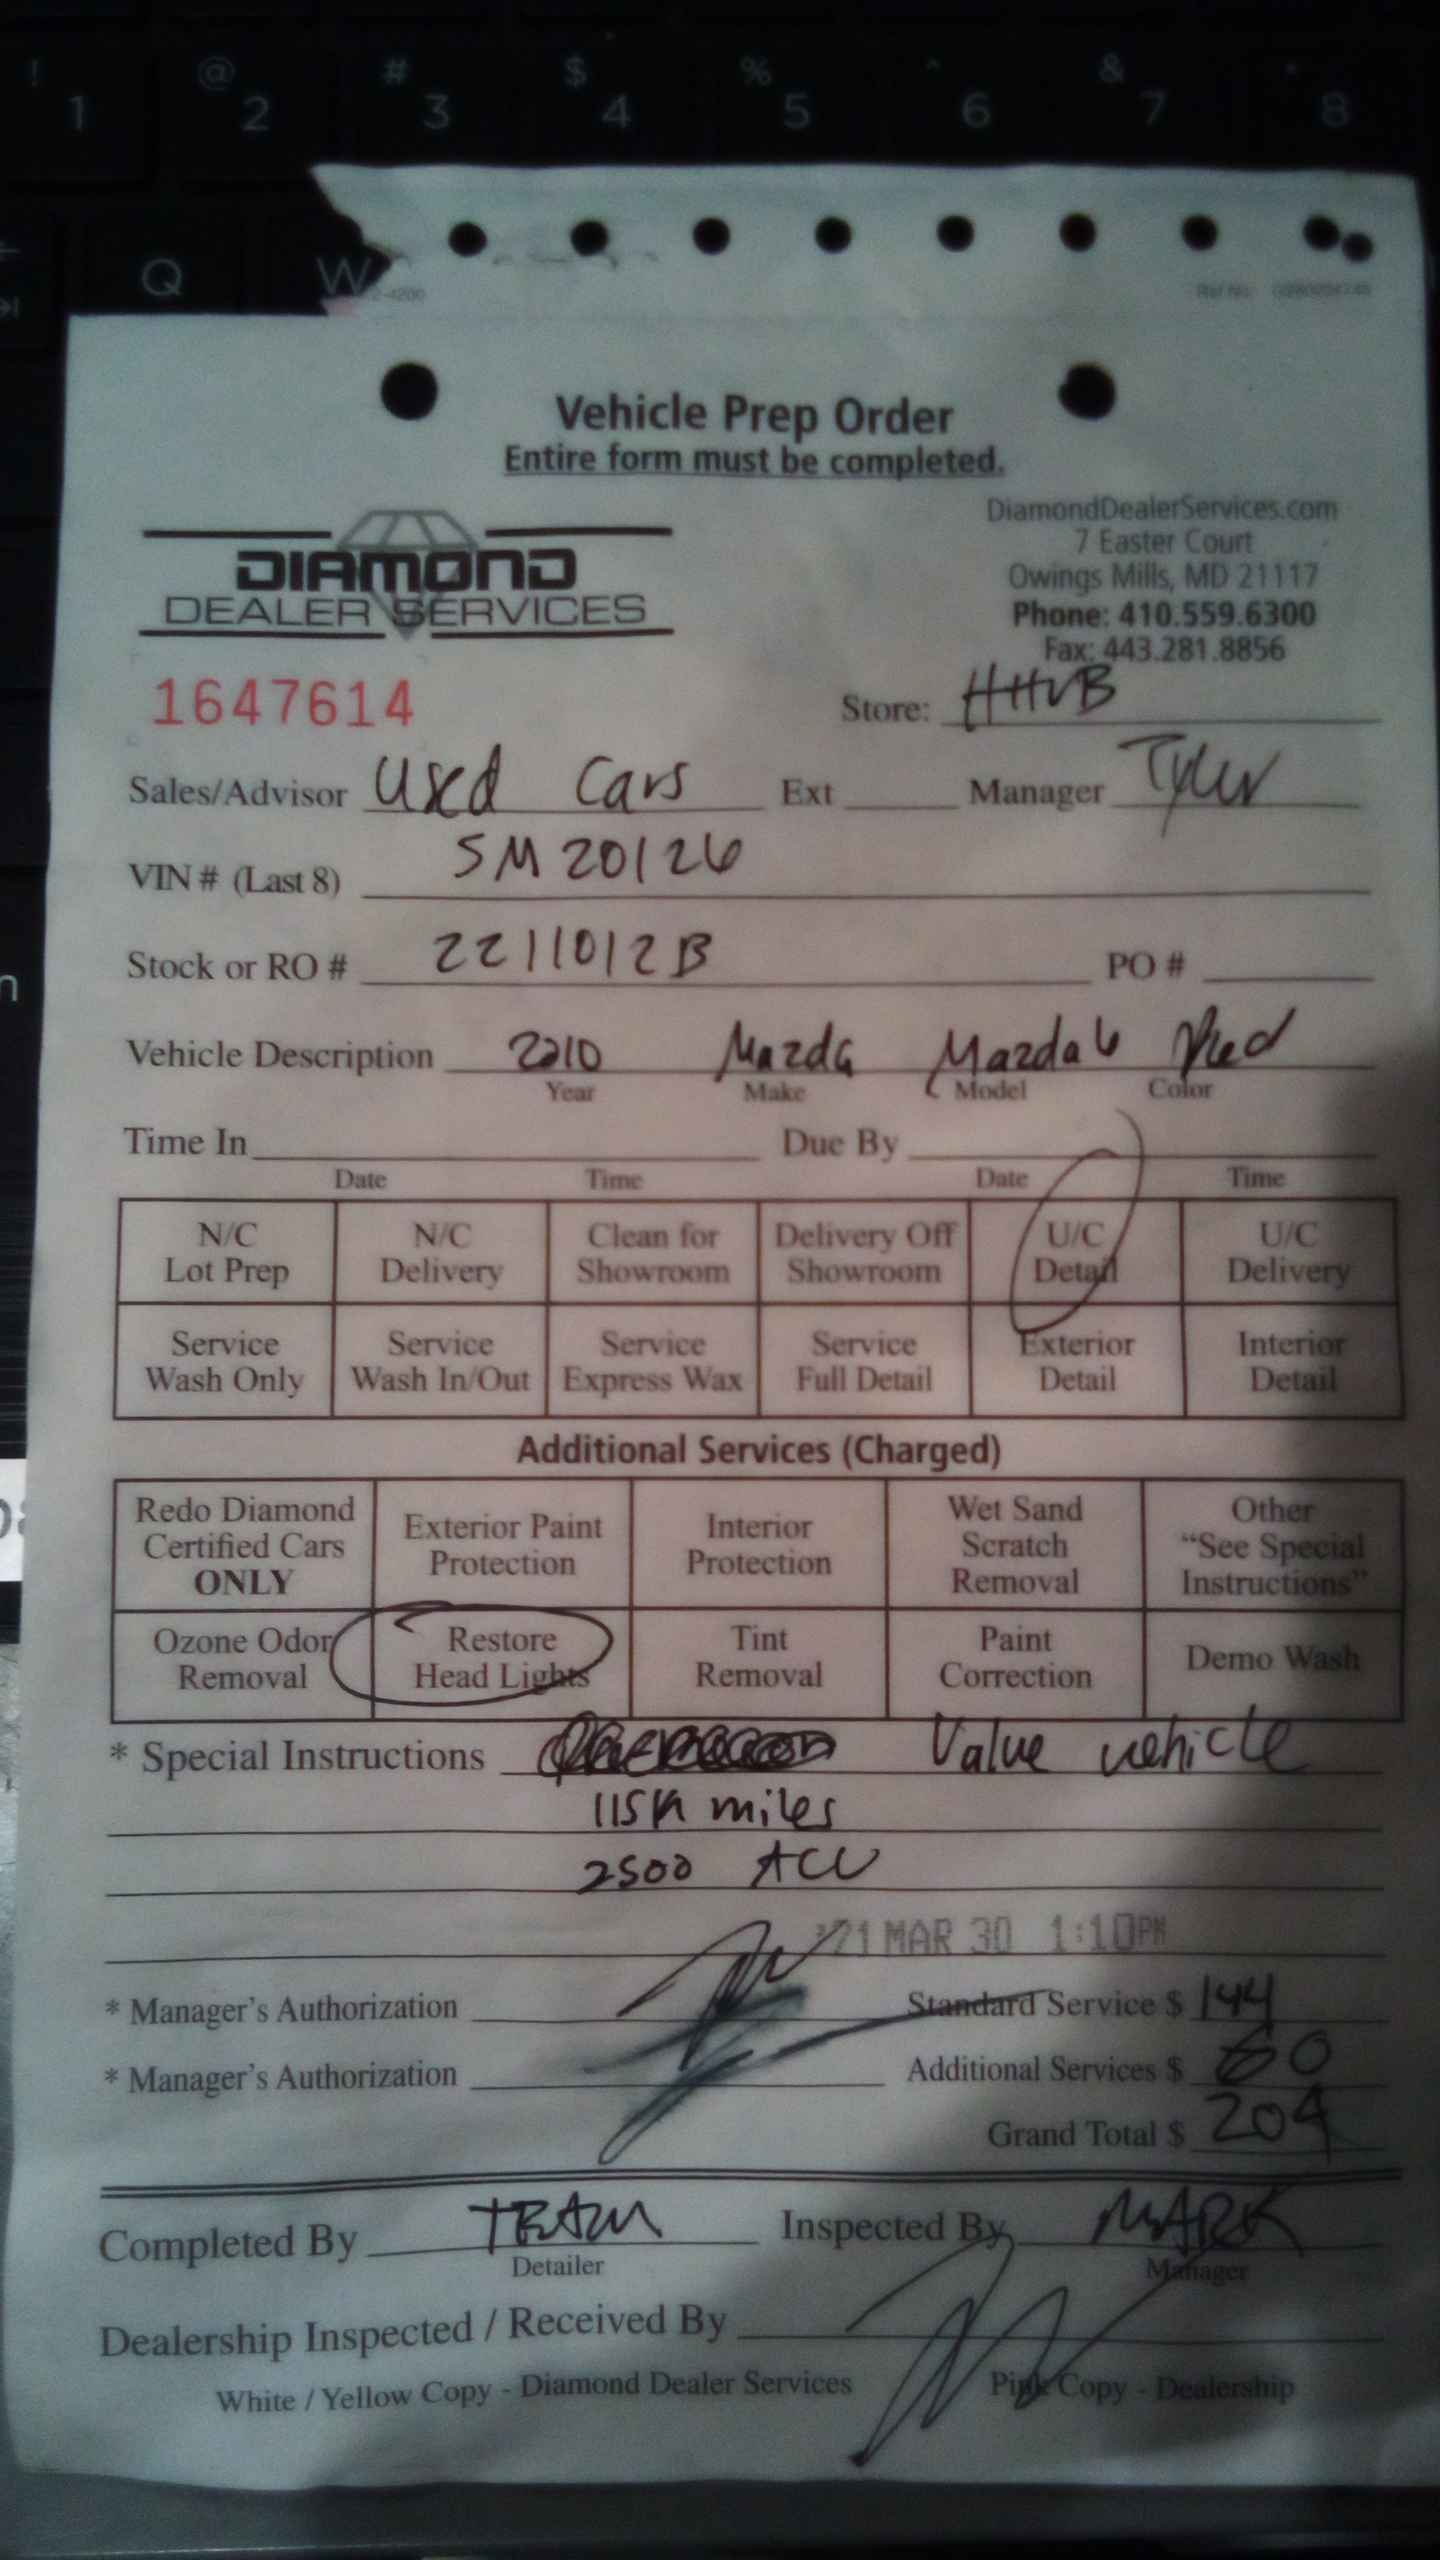 ! @ # $ % ^ & *
1 2 3 4 5 6 7 8
Q W
-4200 Ref No.
Vehicle Prep Order
Entire form must be completed.
DIAMOND
DEALER SERVICES
DiamondDealerServices.com
7 Easter Court
Owings Mills, MD 21117
Phone: 410.559.6300
Fax: 443.281.8856
1647614
Store: HHVB
Sales/Advisor Used Cars Ext Manager Tyler
VIN # (Last 8) 5M20126
Stock or RO # 2211012B PO #
Vehicle Description 2010 Mazda Mazda6 Red
Year Make Model Color
Time In Due By
Date Time Date Time
N/C Lot Prep N/C Delivery Clean for Showroom Delivery Off Showroom U/C Detail U/C Delivery
Service Wash Only Service Wash In/Out Service Express Wax Service Full Detail Exterior Detail Interior Detail
Additional Services (Charged)
Redo Diamond Certified Cars ONLY Exterior Paint Protection Interior Protection Wet Sand Scratch Removal Other "See Special Instructions"
Ozone Odor Removal Restore Head Lights Tint Removal Paint Correction Demo Wash
* Special Instructions Value vehicle
115K miles
2500 ACV
'21 MAR 30 1:10PM
* Manager's Authorization Standard Service $ 144
* Manager's Authorization Additional Services $ 60
Grand Total $ 204
Completed By TEAM Inspected By MARK
Detailer Manager
Dealership Inspected / Received By
White / Yellow Copy - Diamond Dealer Services Pink Copy - Dealership